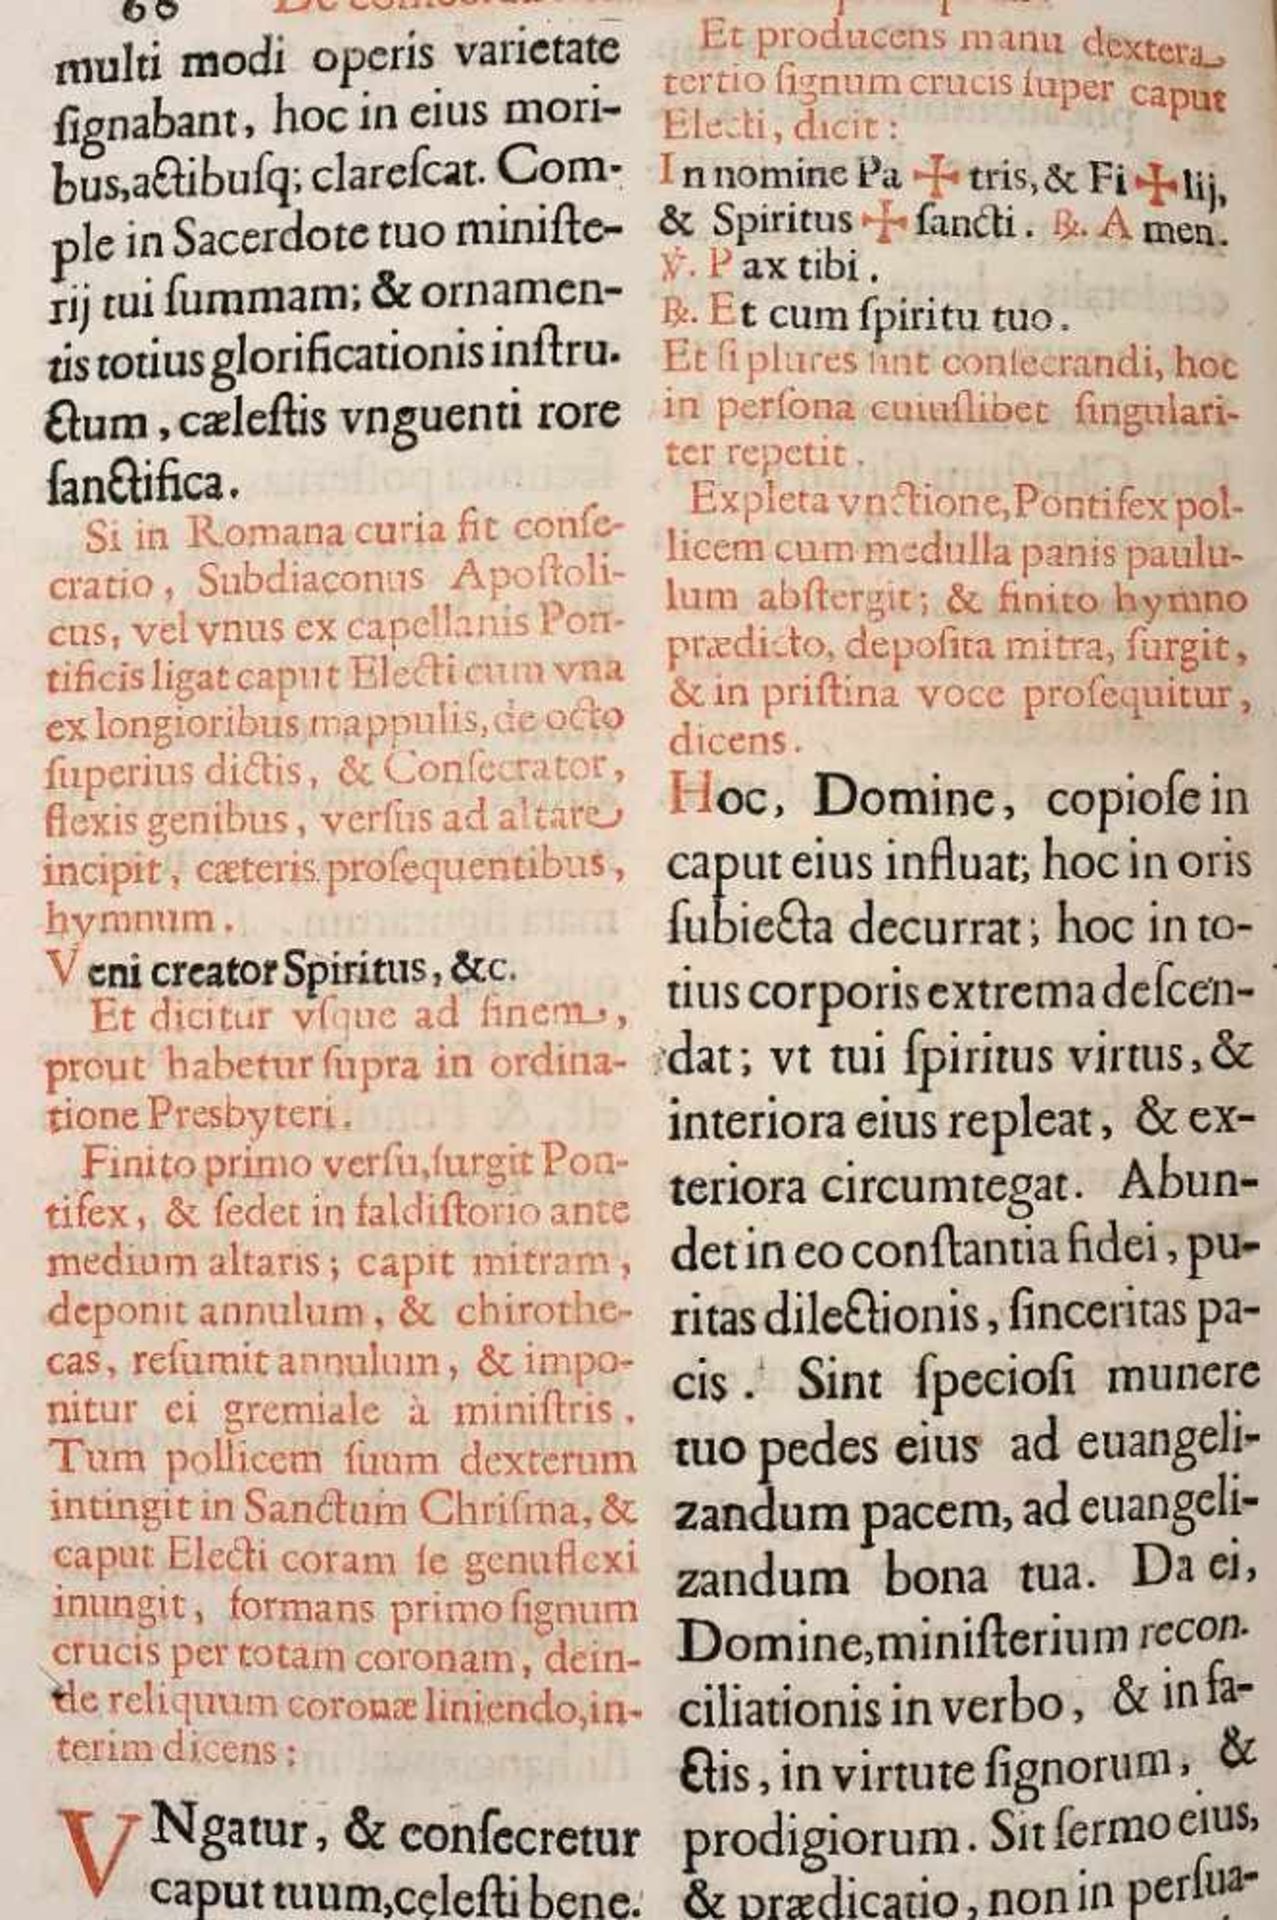 66
multi modi operis varietate
ſignabant, hoc in eius mori-
bus,actibuſq; clareſcat. Com-
ple in Sacerdote tuo miniſte-
rij tui ſummam; & ornamen-
tis totius glorificationis inſtru.
ctum, cæleſtis vnguenti rore
ſanctifica.
Si in Romana curia fit conſe-
cratio, Subdiaconus Apoſtoli-
cus, vel vnus ex capellanis Pon-
tificis ligat caput Electi cum vna
ex longioribus mappulis, de octo
ſuperius dictis, & Conſecrator,
flexis genibus, verſus ad altare
incipit, cæteris proſequentibus,
hymnum.
Veni creator Spiritus, &c.
Et dicitur vſque ad finem,
prout habetur ſupra in ordina-
tione Presbyteri.
Finito primo verſu, ſurgit Pon-
tifex, & ſedet in faldiſtorio ante
medium altaris; capit mitram,
deponit annulum, & chirothe-
cas, reſumit annulum, & impo-
nitur ei gremiale à miniſtris.
Tum pollicem ſuum dexterum
intingit in Sanctum Chriſma, &
caput Electi coram ſe genuflexi
inungit, formans primo ſignum
crucis per totam coronam, dein-
de reliquum coronæ liniendo, in-
terim dicens:
VNgatur, & conſecretur
caput tuum, cęleſti bene.
Et producens manu dextera
tertio ſignum crucis ſuper caput
Electi, dicit:
In nomine Pa ✠ tris, & Fi ✠ lij,
& Spiritus ✠ ſancti. ℟. Amen.
℣. Pax tibi.
℟. Et cum ſpiritu tuo.
Et ſi plures ſint conſecrandi, hoc
in perſona cuiuſlibet ſingulari-
ter repetit.
Expleta vnctione, Pontifex pol-
licem cum medulla panis paulu-
lum abſtergit; & finito hymno
prædicto, depoſita mitra, ſurgit,
& in priſtina voce proſequitur,
dicens.
Hoc, Domine, copioſe in
caput eius influat; hoc in oris
ſubiecta decurrat; hoc in to-
tius corporis extrema deſcen-
dat; vt tui ſpiritus virtus, &
interiora eius repleat, & ex-
teriora circumtegat. Abun-
det in eo conſtantia fidei, pu-
ritas dilectionis, ſinceritas pa-
cis. Sint ſpecioſi munere
tuo pedes eius ad euangeli-
zandum pacem, ad euangeli-
zandum bona tua. Da ei,
Domine, miniſterium recon.
ciliationis in verbo, & in fa-
ctis, in virtute ſignorum, &
prodigiorum. Sit ſermo eius,
& prædicatio, non in perſua-